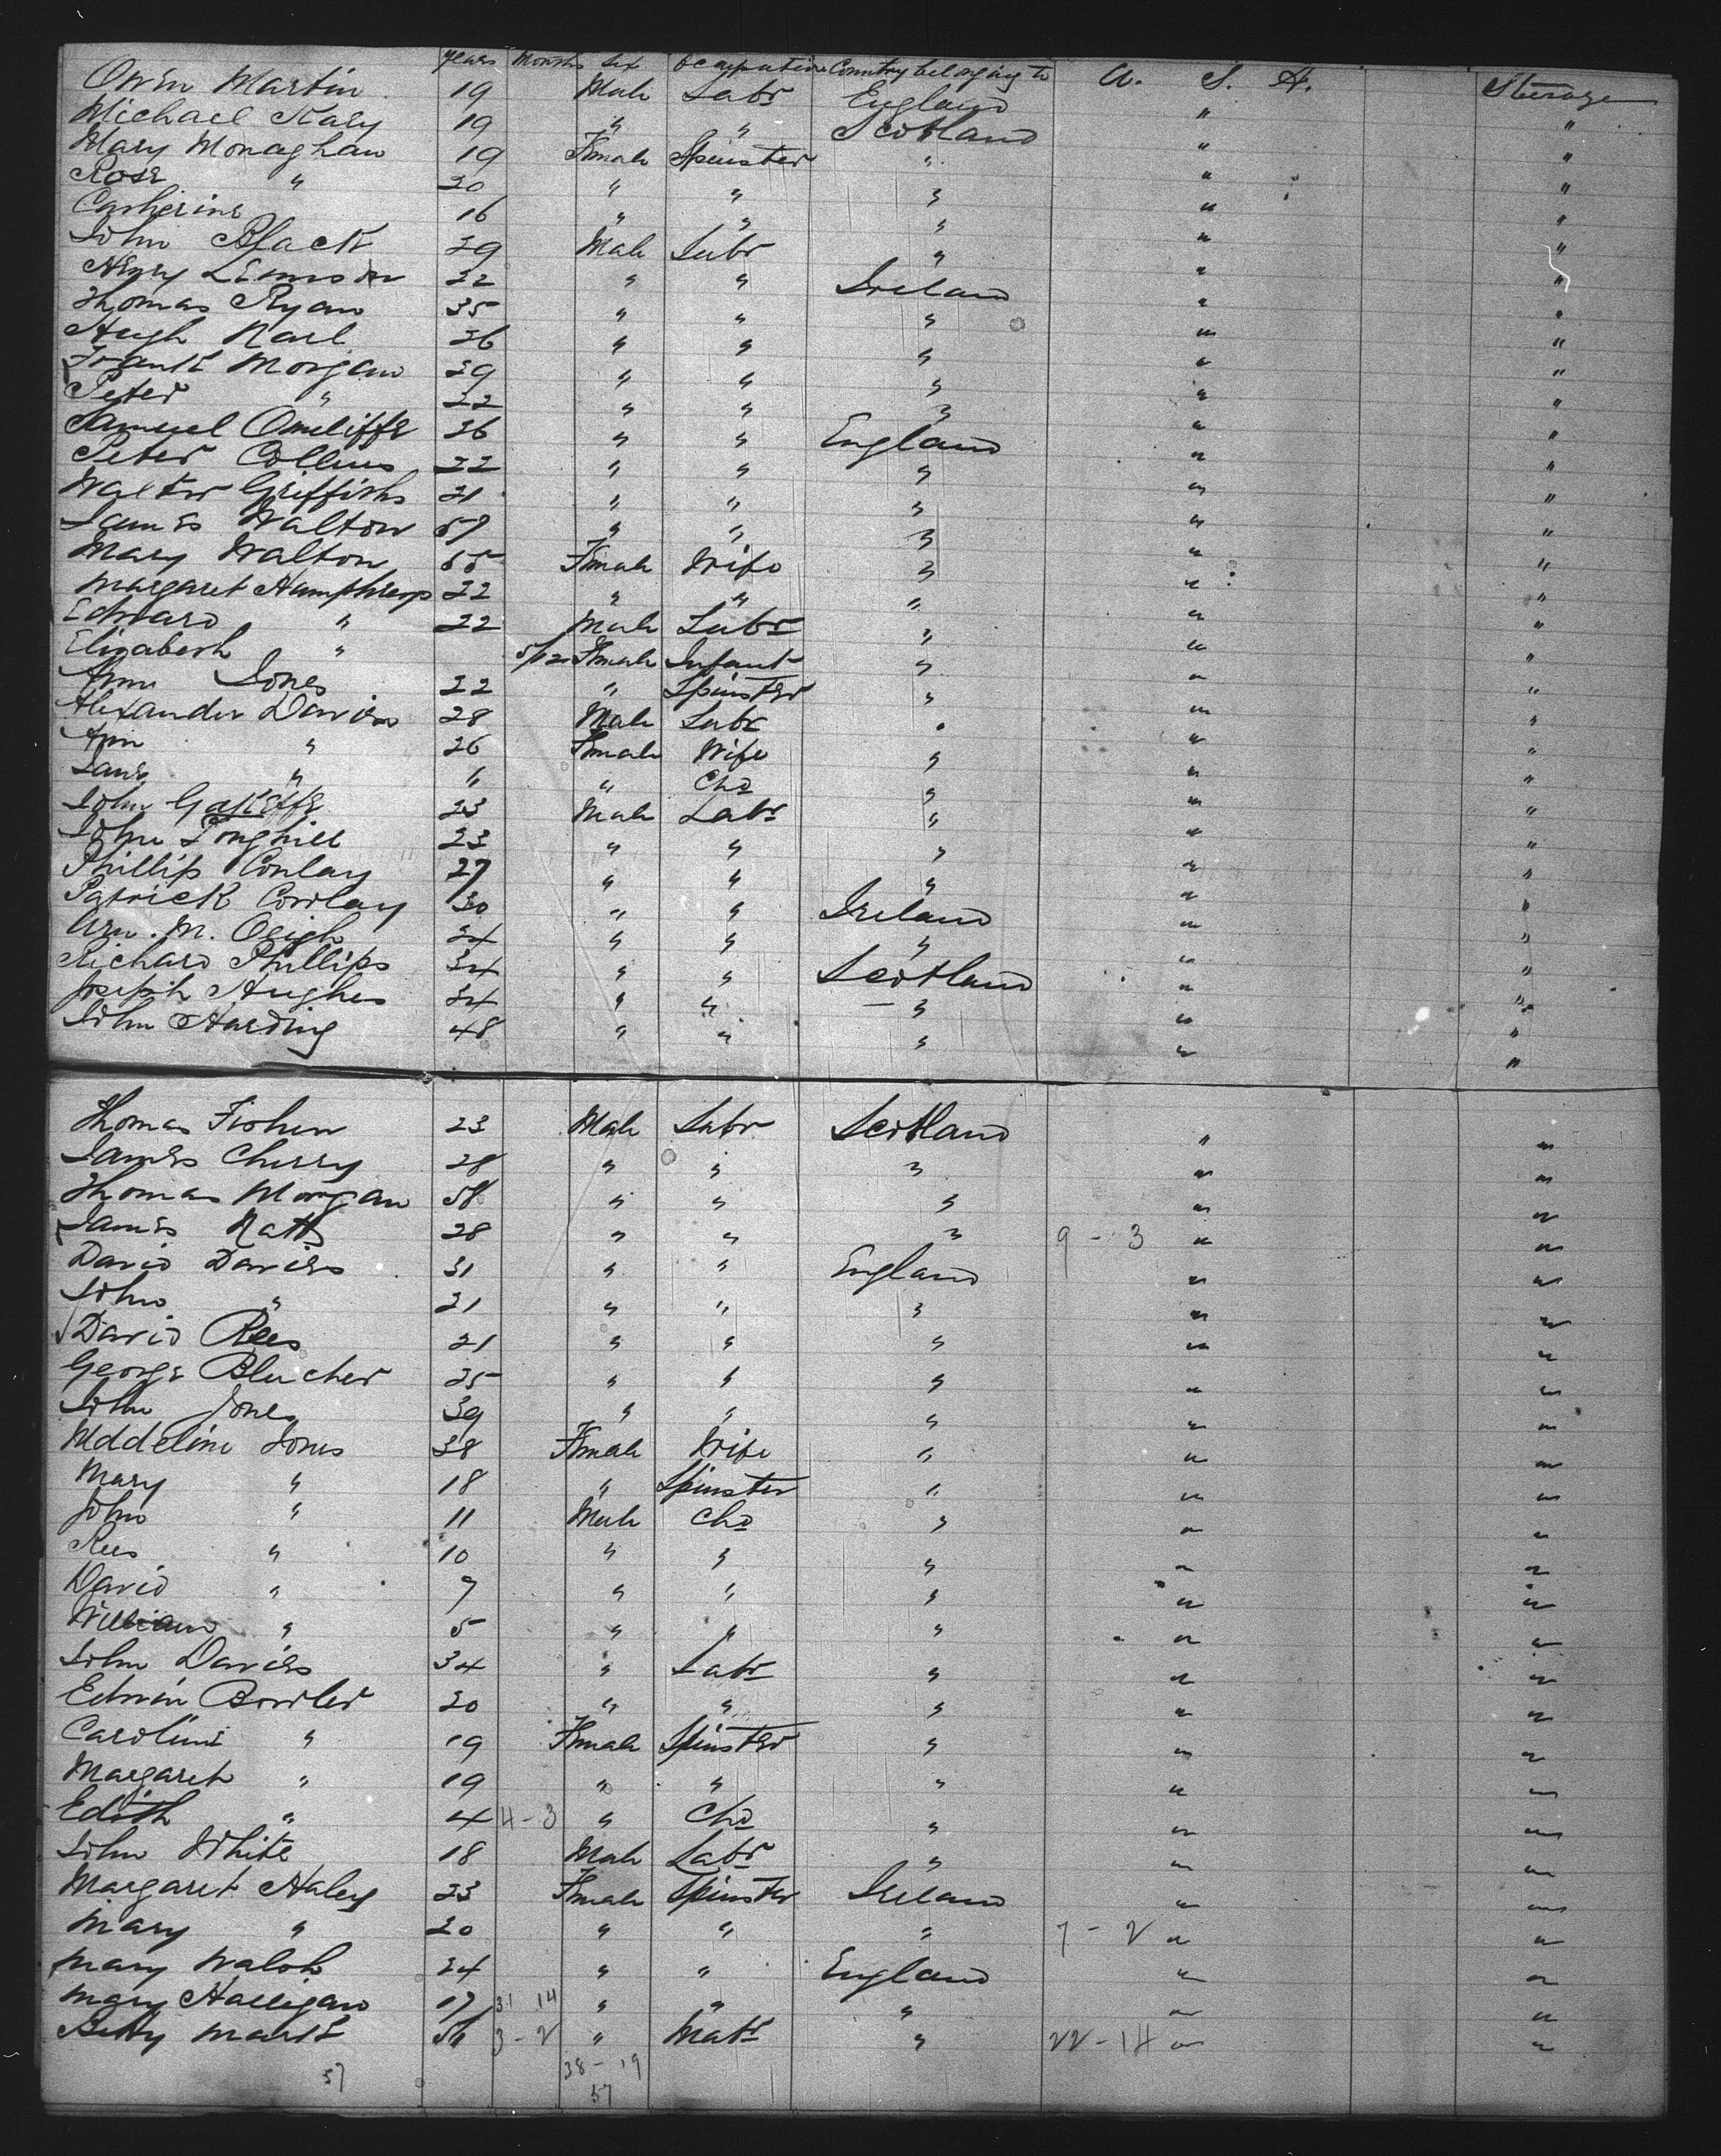 Years Months Sex Occupation Country belonging to
Owen Martin 19 Male Labr England U. S. A. Steerage
Michael Kary 19 " " Scotland " "
Mary Monaghan 19 Female Spinster " " "
Rose " 20 " " " " "
Catherine 16 " " " " "
John Black 29 Male Labr " " "
Henry 22 " " Ireland " "
Thomas Ryan 35 " " " " "
Hugh 26 " " " " "
Frank Morgan 29 " " " " "
Peter " 22 " " " " "
Samuel 26 " " England " "
Peter Collins 22 " " " " "
Walter Griffiths 21 " " " " "
James Walton 57 " " " " "
Mary Walton 55 Female Wife " " "
Margaret Humphreys 22 " " " " "
Edward " 22 Male Labr " " "
Elizabeth " 5/12 Female Infant " " "
Ann Jones 22 " Spinster " " "
Alexander Davies 28 Male Labr " " "
Ann " 26 Female Wife " " "
Jane " " " Chd " " "
John 23 Male Labr " " "
John Longhill 23 " " " " "
Phillip Conlay 27 " " " " "
Patrick Conlay 30 " " Ireland " "
Wm. M. 24 " " " " "
Richard Phillips 34 " " Scotland " "
Joseph Hughes 24 " " " " "
John Harding 48 " " " " "
Thomas Fisher 23 Male Labr Scotland " "
James Cherry 28 " " " " "
Thomas Morgan 58 " " " " "
James Natt 28 " " " 9 - 3 " "
David Davies 31 " " England " "
John " 21 " " " " "
David Rees 21 " " " " "
George Blucher 25 " " " " "
John Jones 39 " " " " "
Mddeline Jones 38 Female Wife " " "
Mary " 18 " Spinster " " "
John " 11 Male Chd " " "
Rees " 10 " " " " "
David " 7 " " " " "
William " 5 " " " " "
John Davies 34 " Labr " " "
Edwin Bowler 20 " " " " "
Caroline " 19 Female Spinster " " "
Margaret " 19 " " " " "
Edith " 4 4 - 3 " Chd " " "
John White 18 Male Labr " " "
Margaret Haley 23 Female Spinster Ireland " "
Mary " 20 " " " 7 - 2 " "
Mary Walsh 24 " " England " "
Mary Halligan 17 31 14 " " " " "
Betty 56 3 - 2 " Matr " 22 - 14 " "
57 38 - 19
57